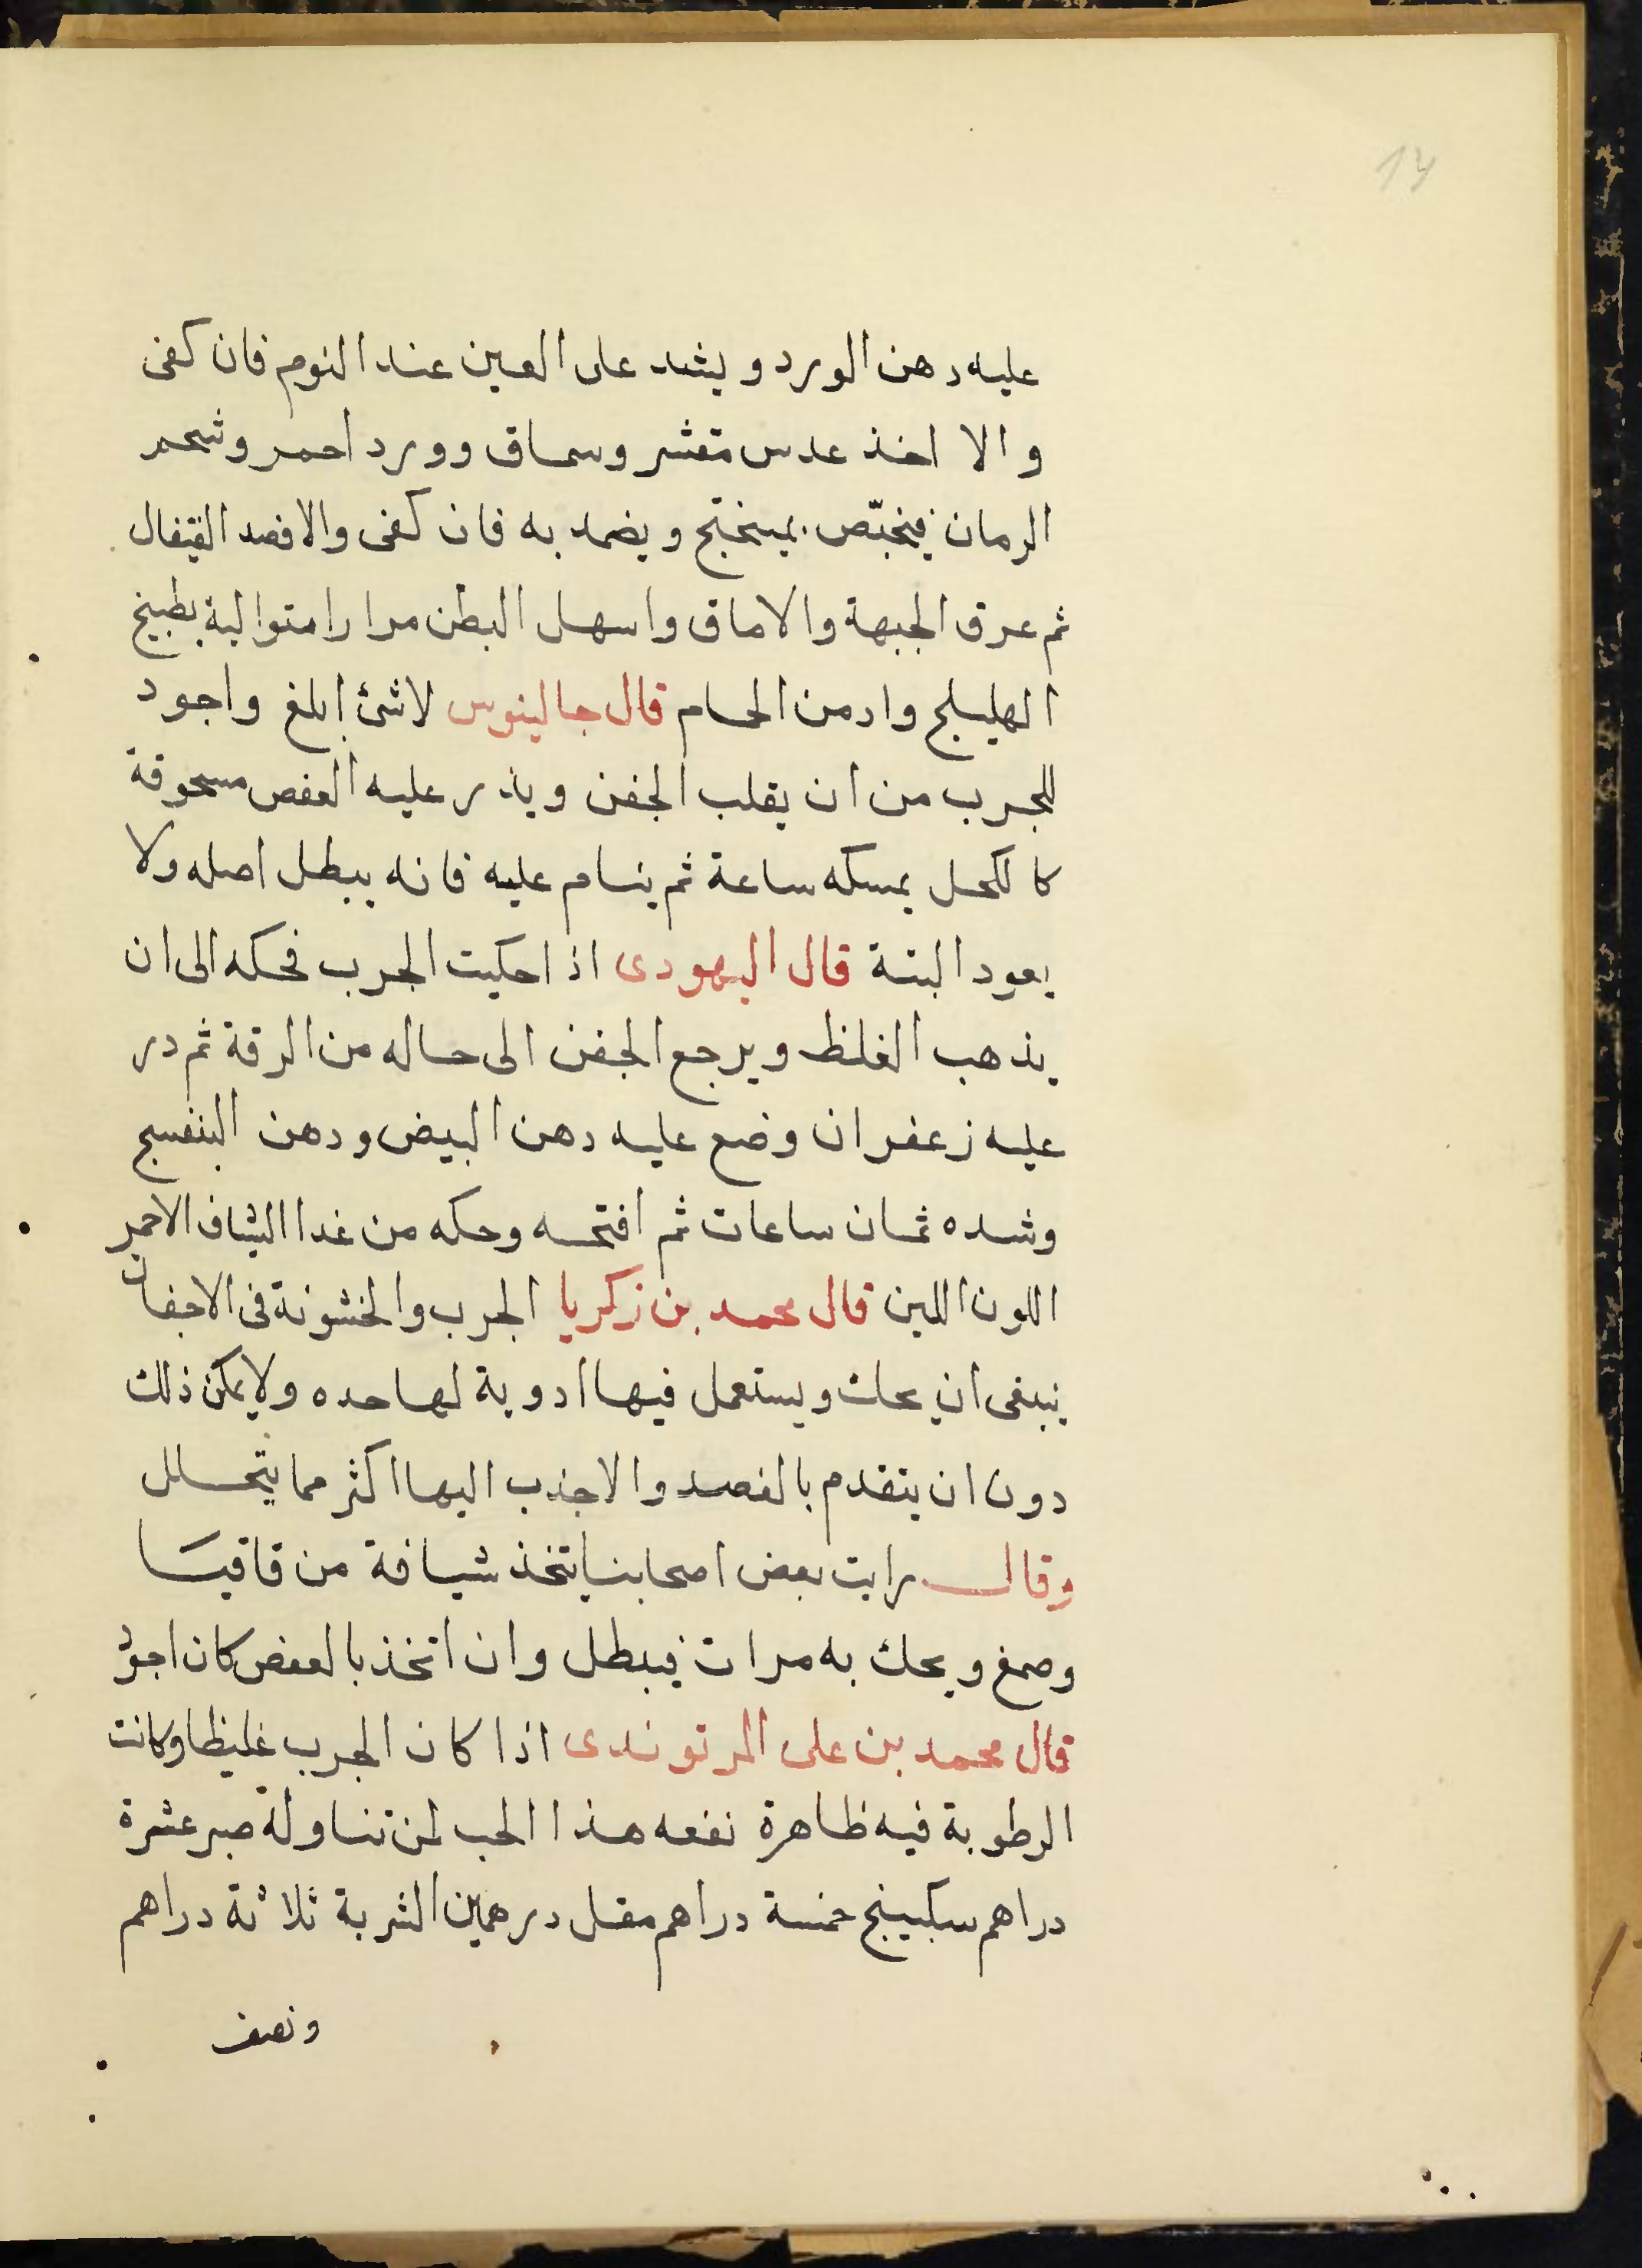 14
عليه دهن الورد ويشد على العين عند النوم فان كفى
والا اخذ عدس مقشر وسماق وورد احمر وشحم
الرمان فيخبّص بميبختج ويضمد به فان كفى والا فصد القيفال
ثم عرق الجبهة والاماق واسهل البطن مرارا متوالية بطبيخ
الهليلج وادمن الحمام قال جالينوس لاشئ ابلغ واجود
للجرب من ان يقلب الجفن ويذر عليه العفص مسحوقة
كالكحل يمسكه ساعة ثم ينام عليه فانه يبطل اصله ولا
يعود البتة قال اليهودى اذا حكيت الجرب فحكه الى ان
يذهب الغلظ ويرجع الجفن الى حاله من الرقة ثم در
عليه زعفران وضع عليه دهن البيض ودهن البنفسج
وشده ثمان ساعات ثم افتحه وحكه من غدا الشياف الاحمر
اللون اللين قال محمد بن زكريا الجرب والخشونة فى الاجفان
ينبغى ان يحك ويستعمل فيها ادوية لها حده ولا يمكن ذلك
دون ان يتقدم بالفصد والا جذب اليها اكثر مما يتحلل
وقال رايت بعض اصحابنا يتخذ شيافة من قاقيا
وصمغ ويحك به مرات فيبطل وان اتخذ بالعفص كان اجود
قال محمد بن على المرتوندى اذا كان الجرب غليظا وكانت
الرطوبة فيه ظاهرة نفعه هذا الحب لمن تناوله صبر عشرة
دراهم سكبينج خمسة دراهم مقل درهمين الشربة ثلاثة دراهم
ونصف